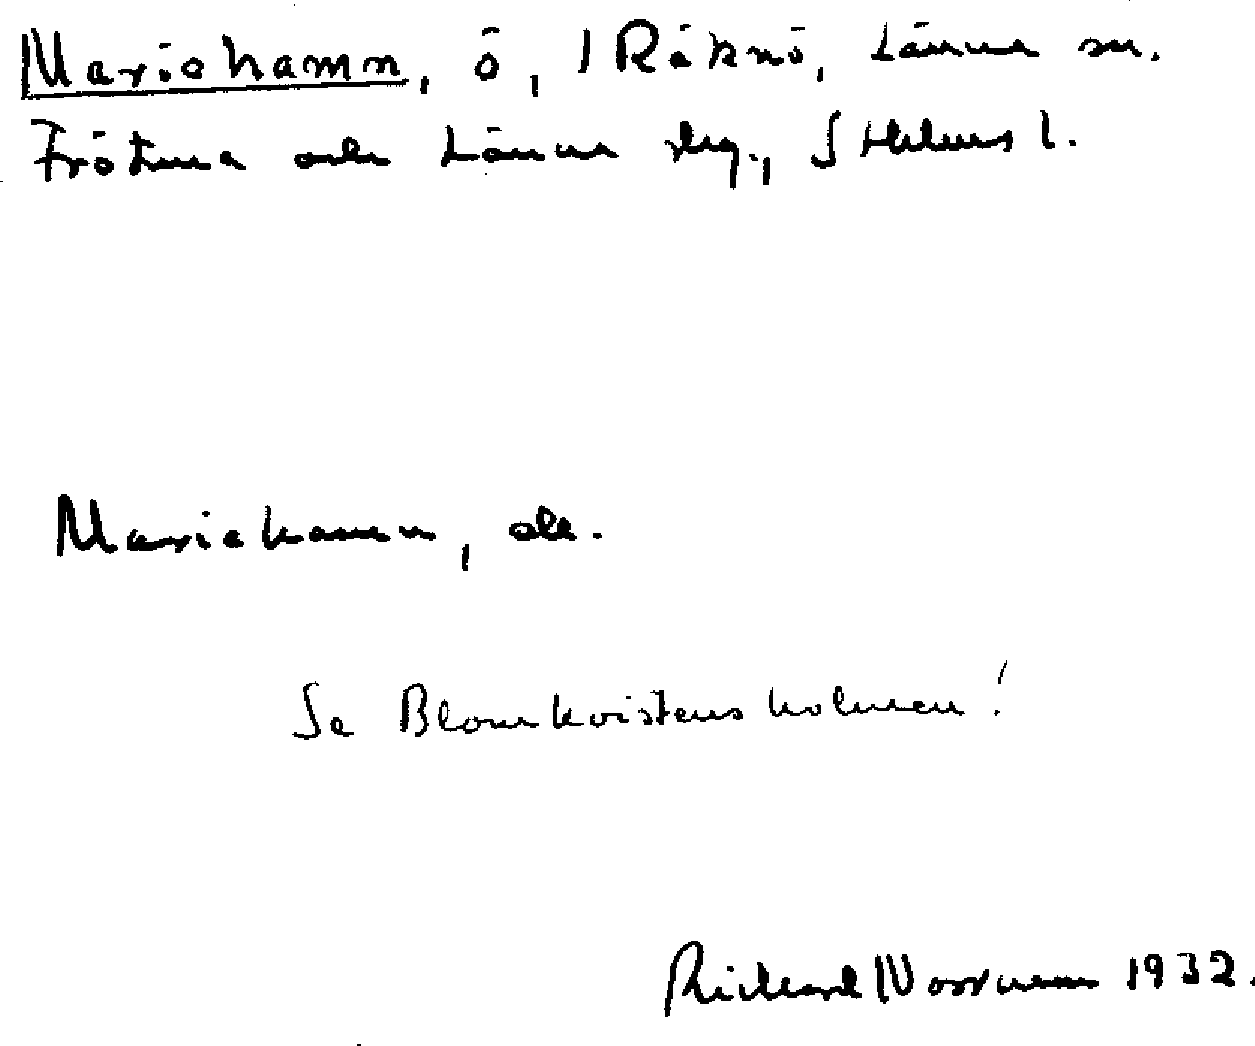 Mariehamn, ö, 1 Råknö, Länna sn.
Frötuna och Länna skg., Sthlms l.
Mariehamn, 
Se Blomkvistens holmen!
Richard Norrman 1932.